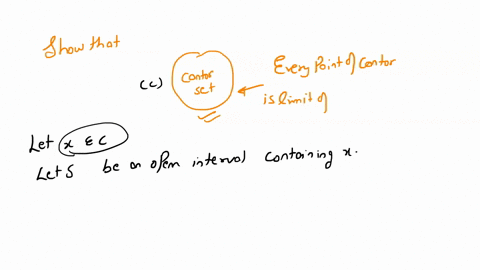 Show that
(c) cantor set
Every Point of Cantor
is limit of
Let x ε C
Let S be an open interval containing x.